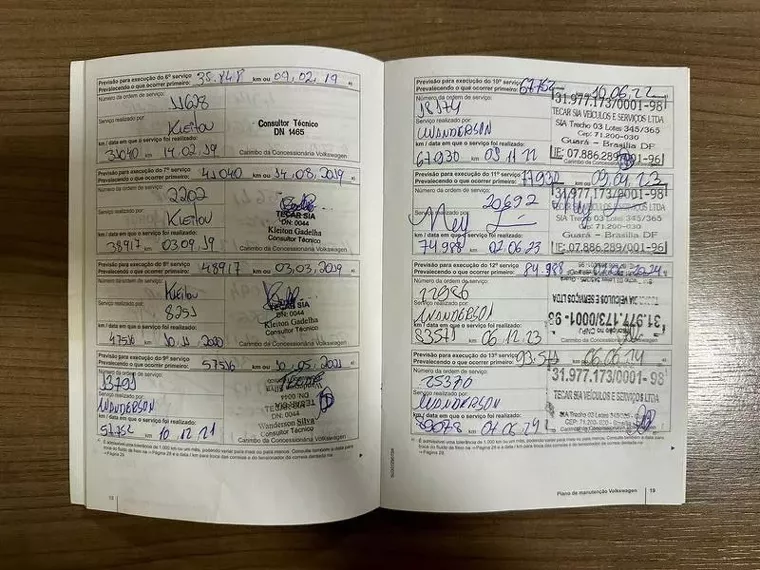 Previsão para execução do 6º serviço
Prevalecendo o que ocorrer primeiro: 35.848 km ou 09.02.19 a)
Número da ordem de serviço:
11628
Serviço realizado por:
Kleiton
Consultor Técnico
DN 1465
km / data em que o serviço foi realizado:
31040 km 14.02.19
Carimbo da Concessionária Volkswagen
Previsão para execução do 7º serviço
Prevalecendo o que ocorrer primeiro: 41040 km ou 14.08.2019
Número da ordem de serviço:
2202
Serviço realizado por:
Kleiton
TECAR SIA
DN: 0044
Kleiton Gadelha
Consultor Técnico
km / data em que o serviço foi realizado:
38917 km 03.09.19
Carimbo da Concessionária Volkswagen
Previsão para execução do 8º serviço
Prevalecendo o que ocorrer primeiro: 48917 km ou 03.03.2019
Número da ordem de serviço:
Kleitou
Serviço realizado por:
8251
TECAR SIA
DN: 0044
Kleiton Gadelha
Consultor Técnico
km / data em que o serviço foi realizado:
47516 km
Carimbo da Concessionária Volkswagen
Previsão para execução do 9º serviço
Prevalecendo o que ocorrer primeiro: 57516 km ou 10.05.2021
Número da ordem de serviço:
13791
Serviço realizado por:
WANDERSON
Wanderson Silva
Consultor Técnico
km / data em que o serviço foi realizado:
51762 km 10.12.21
Carimbo da Concessionária Volkswagen
a) É admissível uma tolerância de 1.000 km ou um mês, podendo variar para mais ou para menos. Consulte também a data para troca do fluido de freio na ⇒ Página 29 e a data / km para troca das correias e do tensionador da correia dentada na
⇒ Página 29.
Previsão para execução do 10º serviço
Prevalecendo o que ocorrer primeiro: 67762 10.06.22
Número da ordem de serviço:
18174
Serviço realizado por:
WANDERSON
31.977.173/0001-98
TECAR SIA VEÍCULOS E SERVIÇOS LTDA
SIA Trecho 03 Lotes 345/365
Cep: 71.200-030
Guará - Brasília DF
IE: 07.886.289/001-96
km / data em que o serviço foi realizado:
67930 km 09.11.22
Previsão para execução do 11º serviço
Prevalecendo o que ocorrer primeiro: 77930 km ou 09.04.23
Número da ordem de serviço:
20692
Serviço realizado por:
31.977.173/0001-98
Guará - Brasília DF
IE: 07.886.289/001-96
km / data em que o serviço foi realizado:
74.988 km 02.06.23
Previsão para execução do 12º serviço
Prevalecendo o que ocorrer primeiro: 84.988 km ou
Número da ordem de serviço:
22986
Serviço realizado por:
WANDERSON
31.977.173/0001-93
km / data em que o serviço foi realizado:
83571 km 06.12.23
Previsão para execução do 13º serviço
Prevalecendo o que ocorrer primeiro: 93.571 km ou 06.06.24
Número da ordem de serviço:
25370
Serviço realizado por:
WANDERSON
31.977.173/0001-98
TECAR SIA VEÍCULOS E SERVIÇOS LTDA
SIA Trecho 03 Lotes 345/365
CEP: 71.200-030
km / data em que o serviço foi realizado:
89078 km
a) É admissível uma tolerância de 1.000 km ou um mês, podendo variar para mais ou para menos. Consulte também a data para troca do fluido de freio na ⇒ Página 29 e a data / km para troca das correias e do tensionador da correia dentada na
⇒ Página 29.
Plano de manutenção Volkswagen 19